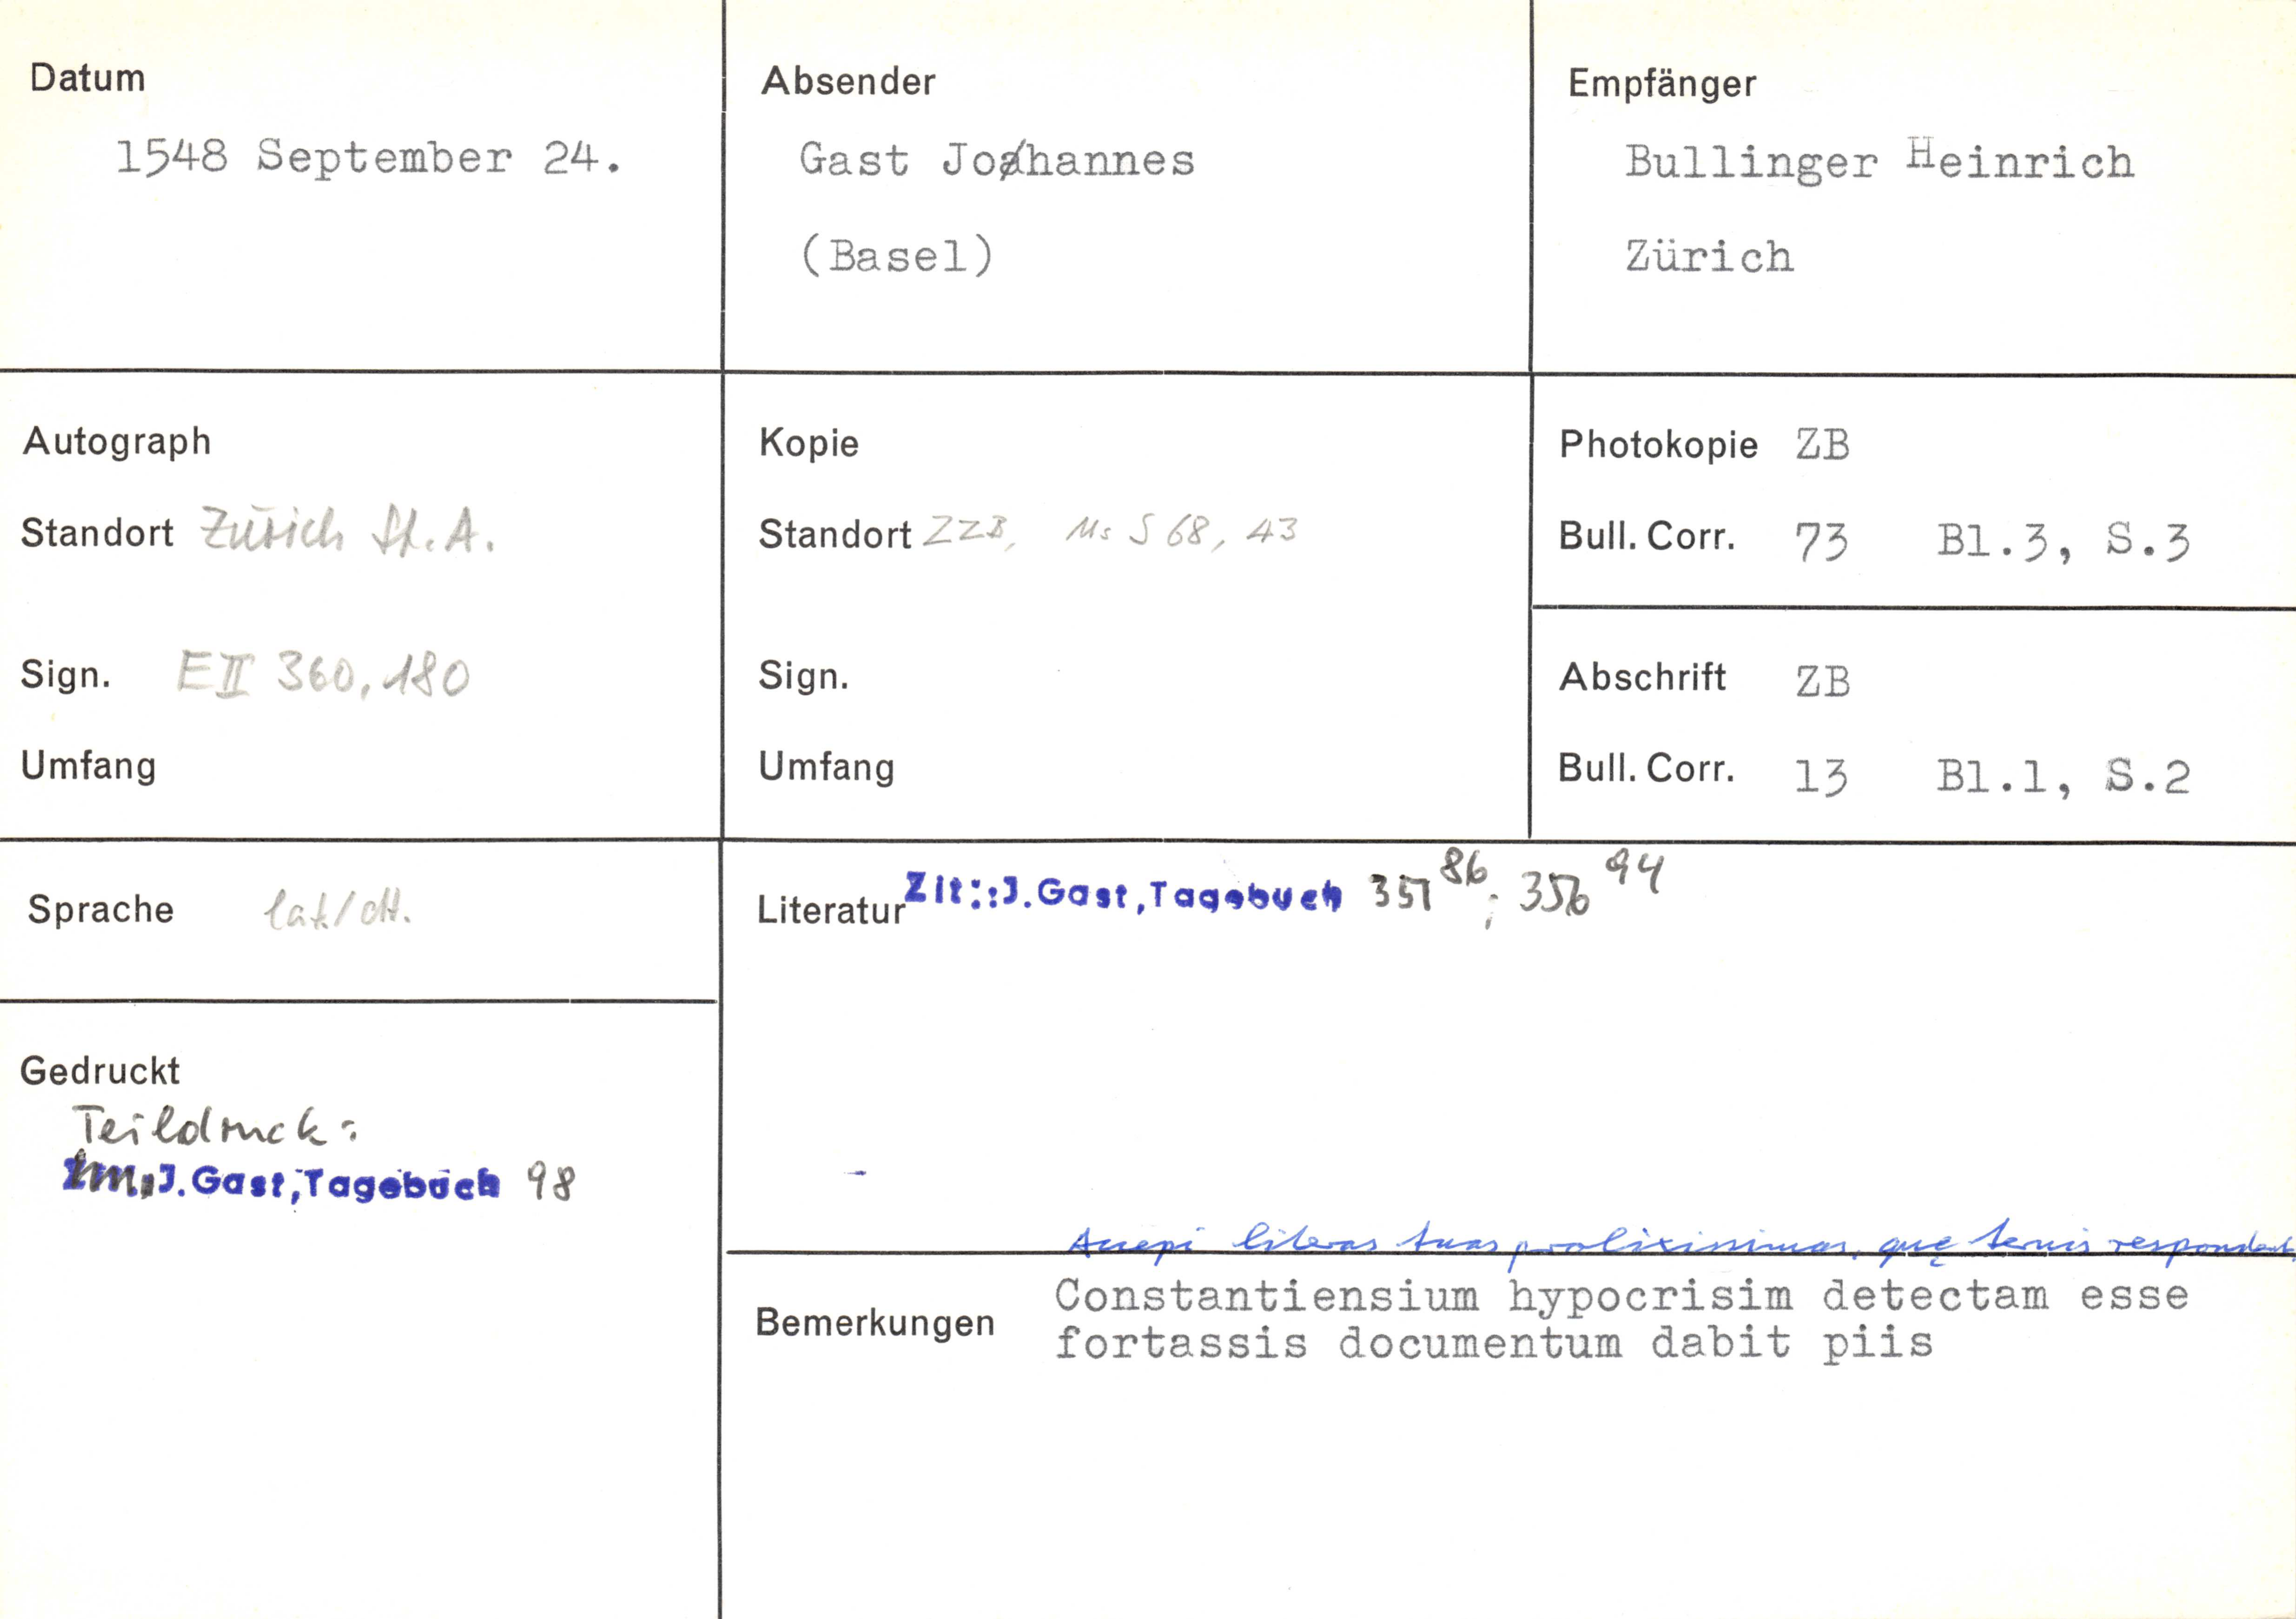 Datum
1548 September 24.
Absender
Gast Johannes
(Basel)
Empfänger
Bullinger Heinrich
Zürich
Autograph
Standort Zürich St.A.
Sign. E II 360, 180
Umfang
Kopie
Standort ZZB, Ms S 68, 43
Sign.
Umfang
Photokopie ZB
Bull. Corr. 73 Bl.3, S.3
Abschrift ZB
Bull. Corr. 13 Bl.1, S.2
Sprache lat./dt.
Gedruckt
Teildruck:
J.Gast,Tagebuch 98
Literatur Zit.:J.Gast,Tagebuch 351 86; 356 94
Accepi literas tuas prolixissimas, quę respondent
Bemerkungen
Constantiensium hypocrisim detectam esse
fortassis documentum dabit piis